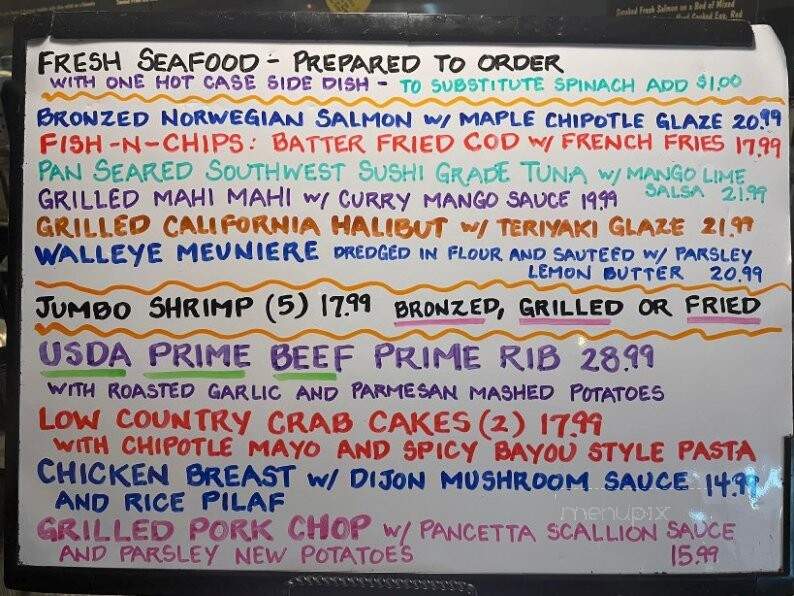 Smoked Fresh Salmon on a Bed of Mixed
FRESH SEAFOOD - PREPARED TO ORDER
WITH ONE HOT CASE SIDE DISH - TO SUBSTITUTE SPINACH ADD $1.00
BRONZED NORWEGIAN SALMON W/ MAPLE CHIPOTLE GLAZE 20.99
FISH-N-CHIPS: BATTER FRIED COD W/ FRENCH FRIES 17.99
PAN SEARED SOUTHWEST SUSHI GRADE TUNA W/ MANGO LIME
SALSA 21.99
GRILLED MAHI MAHI W/ CURRY MANGO SAUCE 19.99
GRILLED CALIFORNIA HALIBUT W/ TERIYAKI GLAZE 21.99
WALLEYE MEUNIERE DREDGED IN FLOUR AND SAUTEED W/ PARSLEY
LEMON BUTTER 20.99
JUMBO SHRIMP (5) 17.99 BRONZED, GRILLED OR FRIED
USDA PRIME BEEF PRIME RIB 28.99
WITH ROASTED GARLIC AND PARMESAN MASHED POTATOES
LOW COUNTRY CRAB CAKES (2) 17.99
WITH CHIPOTLE MAYO AND SPICY BAYOU STYLE PASTA
CHICKEN BREAST W/ DIJON MUSHROOM SAUCE 14.99
AND RICE PILAF
menupix
GRILLED PORK CHOP W/ PANCETTA SCALLION SAUCE
AND PARSLEY NEW POTATOES 15.99